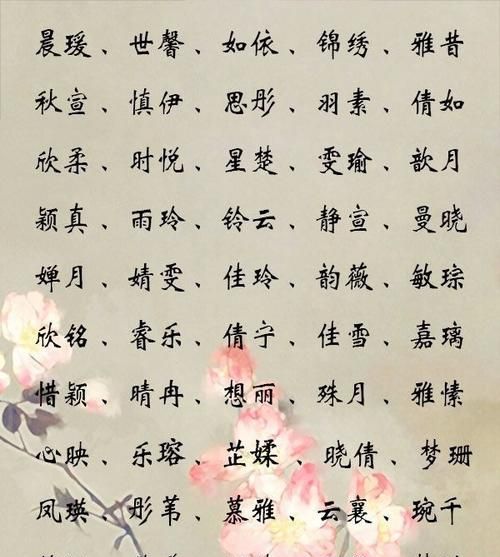 晨瑗、世馨、如依、锦绣、雅昔
秋宣、慎伊、思彤、羽素、倩如
欣柔、时悦、星楚、雯瑜、歆月
颖真、雨玲、铃云、静宣、曼晓
婵月、婧雯、佳玲、韵薇、敏琮
欣铭、睿乐、倩宁、佳雪、嘉璃
惜颖、晴冉、想丽、殊月、雅愫
心映、乐瑢、芷媃、晓倩、梦珊
凤瑛、彤苇、慕雅、云襄、琬千